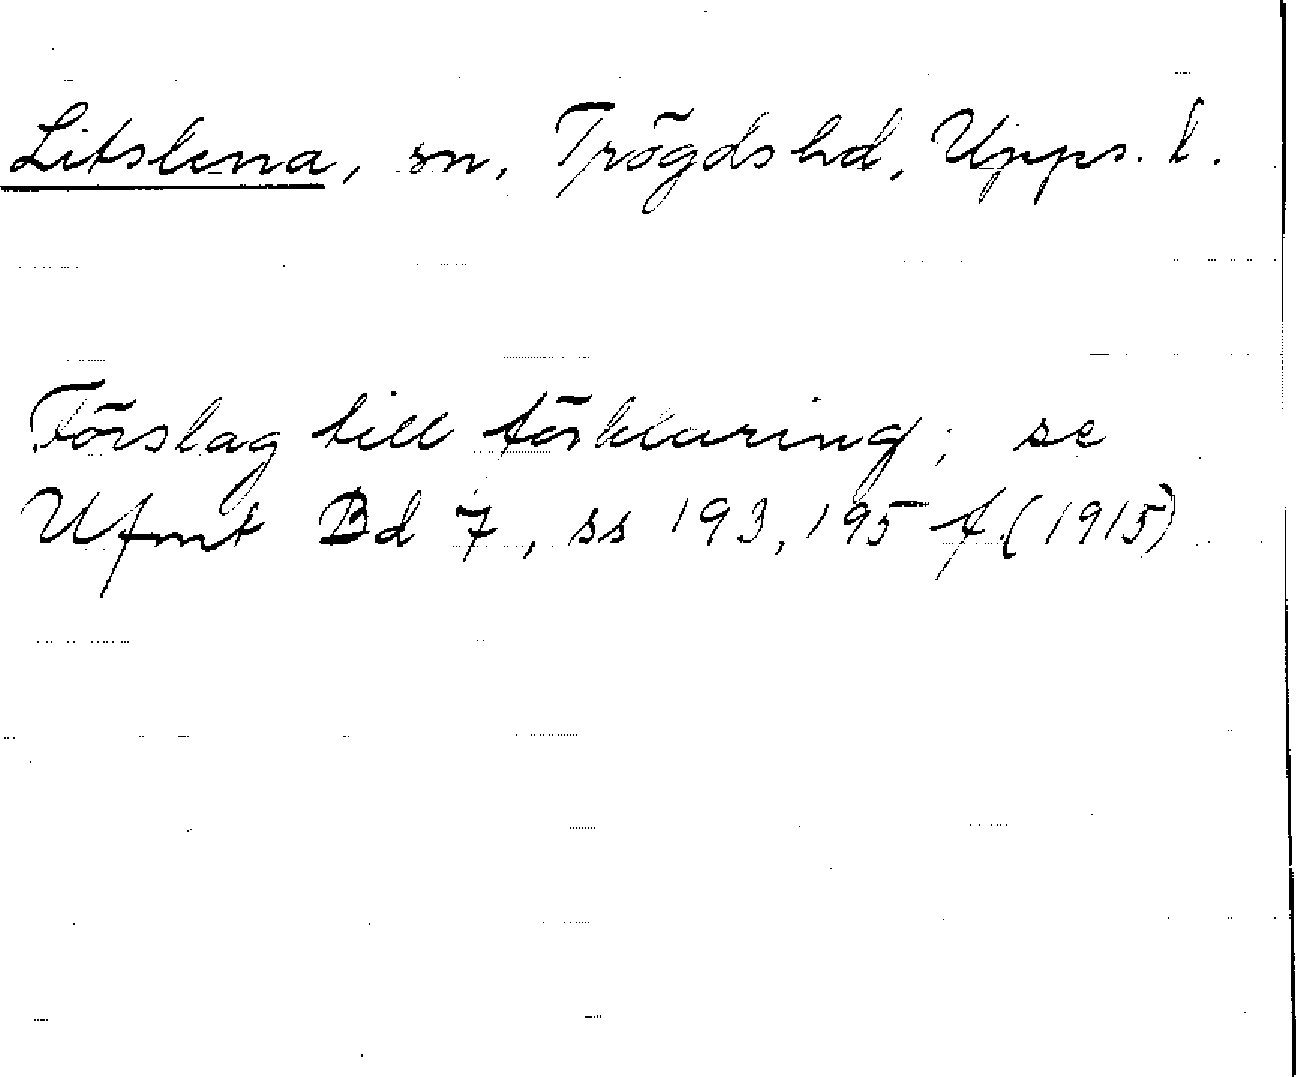 Litslena, sn, Trögds hd, Upps. l.
Förslag till förklaring; se
Ufmt Bd 7, ss 193, 195 f. (1915)